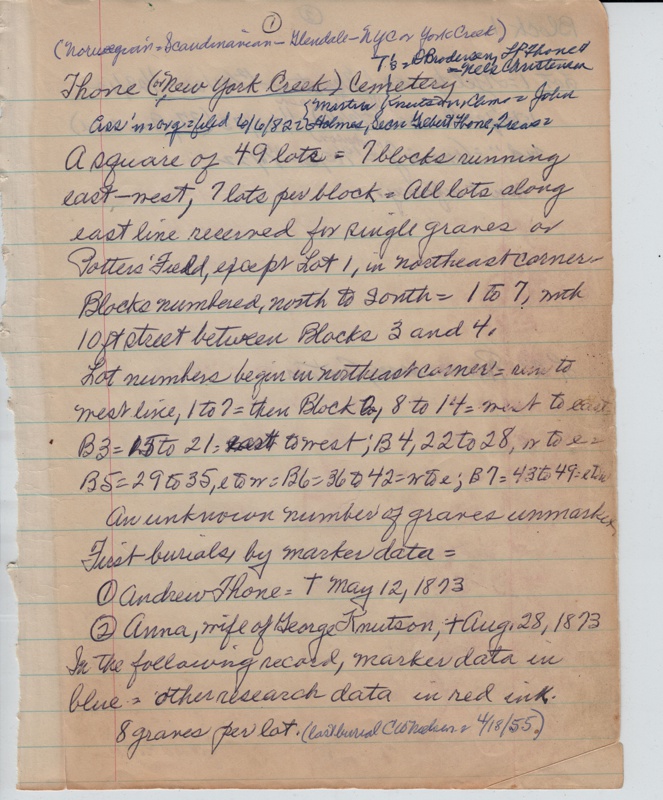 ①
(Norwegian = Scandinavian - Glendale - NYC or York Creek)
T's = O Brodersen, LP Thone &
= Nels Christensen
Thone (or New York Creek) Cemetery
Martin Knutson, Chmn = John
Ass'n org = filed 6/6/82 = Holmes, Secr Gebert Thone, Treas =
A square of 49 lots = 7 blocks running
east-west, 7 lots per block = All lots along
east line reserved for single graves or
Potters' Field, except Lot 1, in northeast corner -
Blocks numbered, north to south = 1 to 7, with
10 ft street between Blocks 3 and 4.
Lot numbers begin in northeast corner = run to
west line, 1 to 7 = then Block 2, 8 to 14 = west to east
B3 = 15 to 21 = east to west; B4, 22 to 28, w to e =
B5 = 29 to 35, e to w = B6 = 36 to 42 = w to e; B7 = 43 to 49 = e to w
An unknown number of graves unmarked
First burials, by marker data =
① Andrew Thone = † May 12, 1873
② Anna, wife of George Knutson, † Aug. 28, 1873
In the following record, marker data in
blue = other research data in red ink.
8 graves per lot. (last burial 4/18/55)